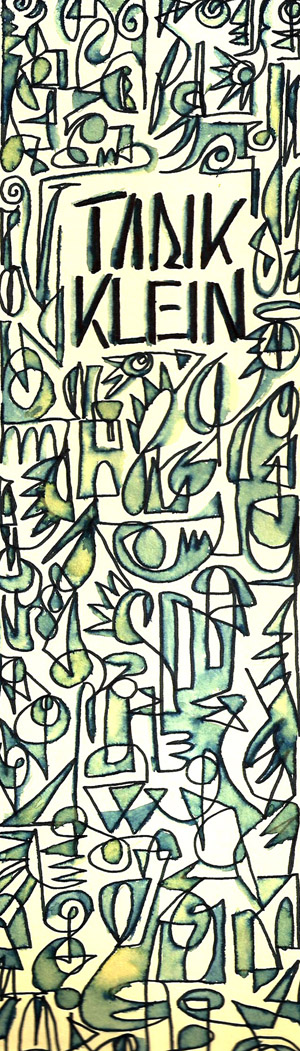 TANK
KLEIN